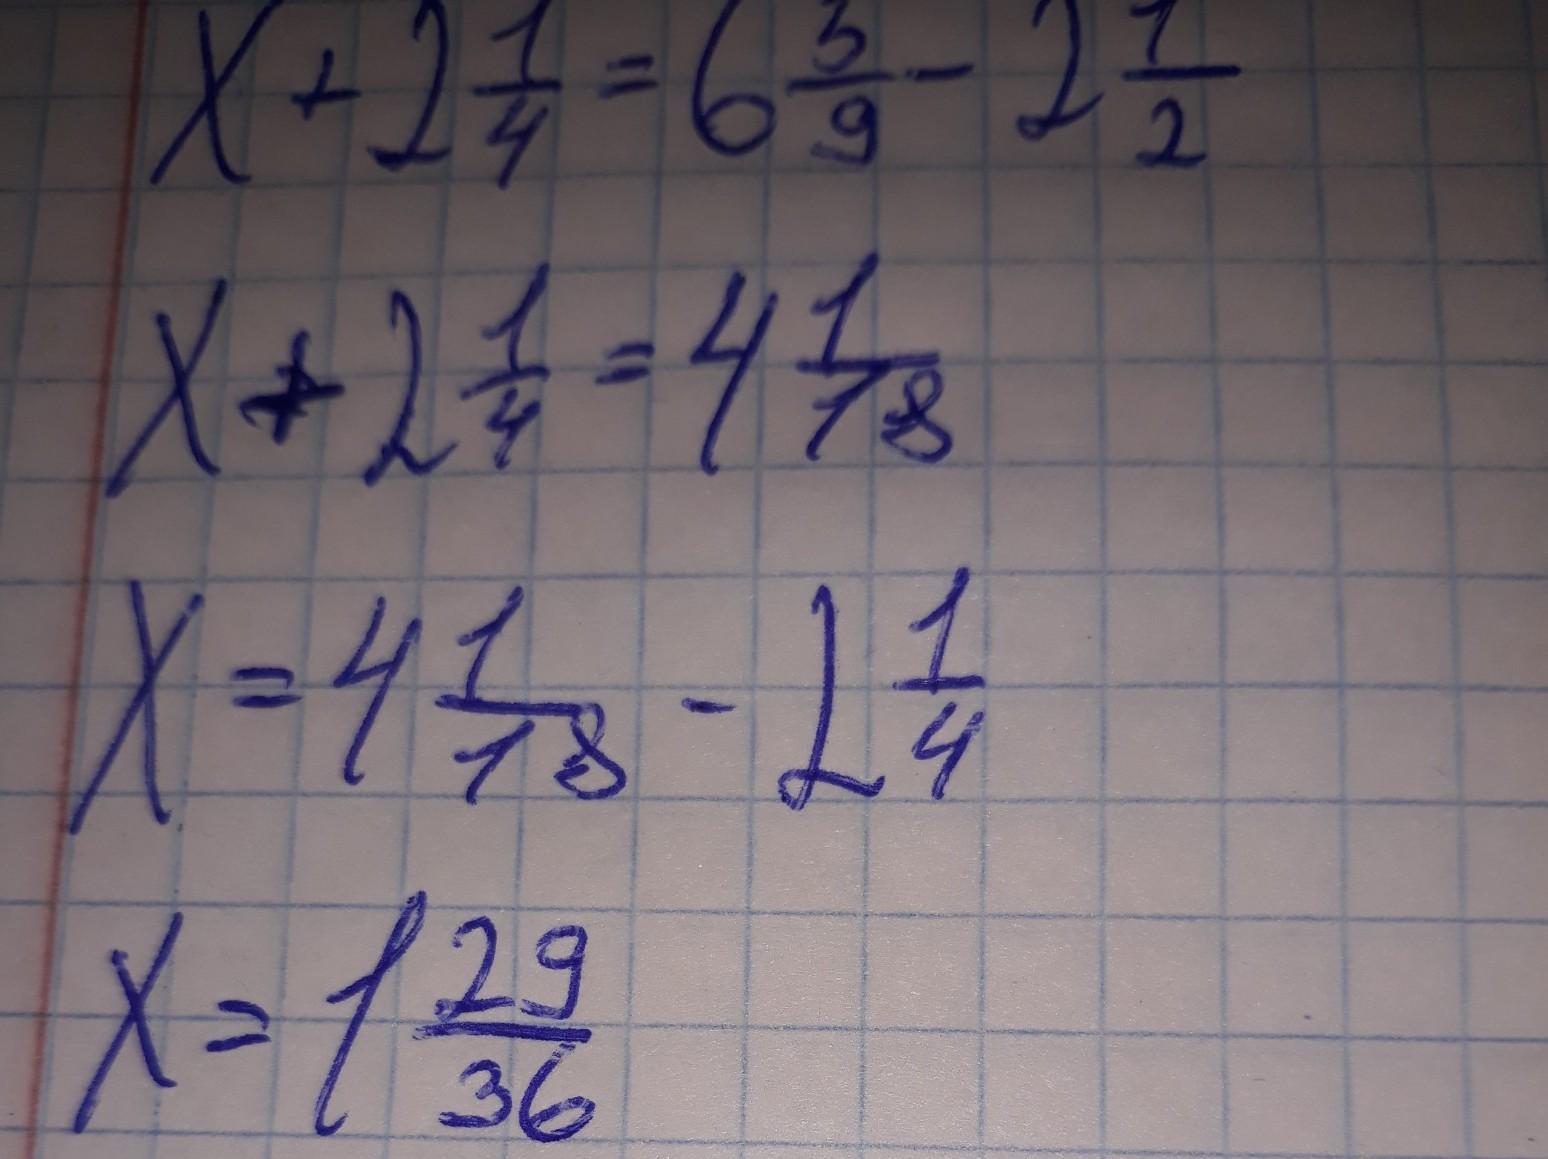 x + 2 1/4 = 6 5/9 - 2 1/2
x + 2 1/4 = 4 1/18
x = 4 1/18 - 2 1/4
x = 1 29/36